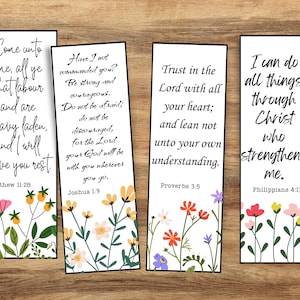 Come unto
me, all ye
that labour
and are
heavy laden,
and I will
give you rest.
Matthew 11:28
Have I not
commanded you?
Be strong and
courageous.
Do not be afraid;
do not be
discouraged,
for the LORD
your God will be
with you wherever
you go.
Joshua 1:9
Trust in the
Lord with all
your heart;
and lean not
unto your own
understanding.
Proverbs 3:5
I can do
all things
through
Christ
who
strengthens
me.
Philippians 4:13